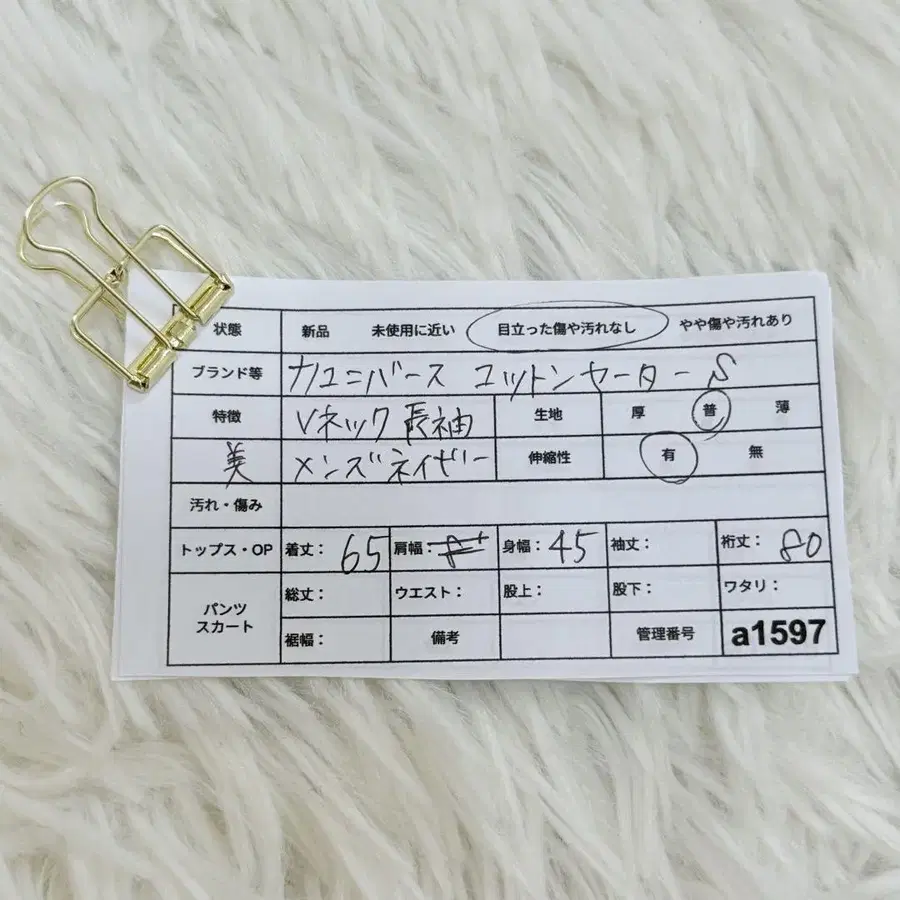 状態 新品 未使用に近い 目立った傷や汚れなし やや傷や汚れあり
ブランド等 カユニバース コットンセーター S
特徴 Vネック 長袖 生地 厚 普 薄
美 メンズネイビー 伸縮性 有 無
汚れ・傷み
トップス・OP 着丈: 65 肩幅: 身幅: 45 袖丈: 裄丈: 80
パンツ スカート 総丈: ウエスト: 股上: 股下: ワタリ:
裾幅: 備考 管理番号 a1597